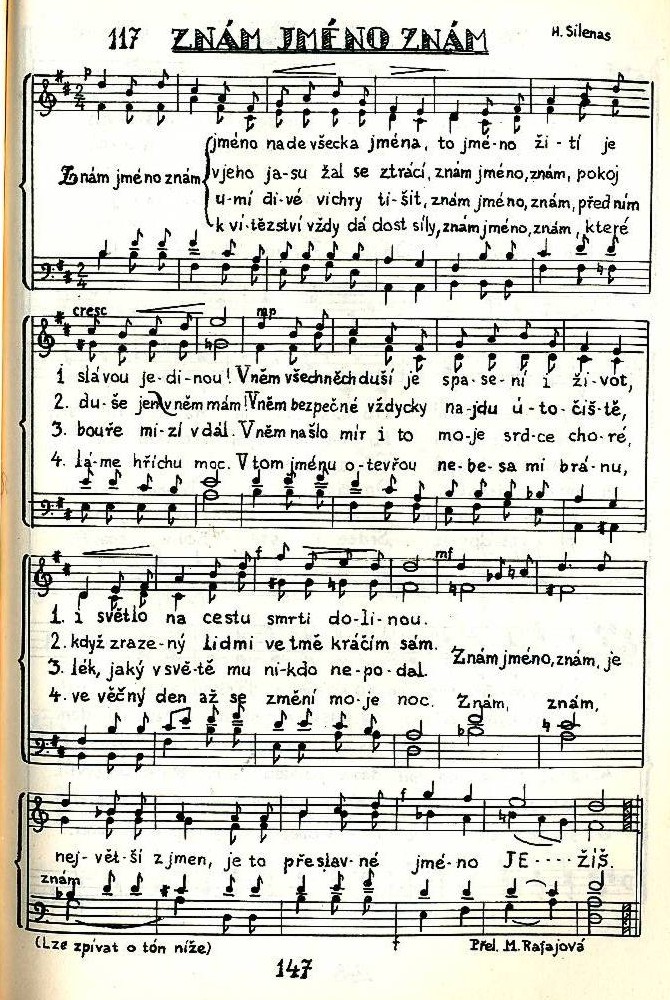 117 ZNÁM JMÉNO ZNÁM H. Silenas
p
jméno nade všecka jména, to jmé-no ži-tí je
Znám jméno znám v jeho ja-su žal se ztrácí, znám jméno, znám, pokoj
u-mí di-vé vichry ti-šit, znám jméno, znám, před ním
k ví-tězství vždy dá dost síly, znám jméno, znám, které
cresc mp
1 slávou je-di-nou! V něm všechněch duší je spa-se-ní i ži-vot,
2. du-še jen v něm mám! V něm bezpečné vždycky na-jdu ú-to-čiš-tě,
3. bouře mi-zí v dál. V něm našlo mír i to mo-je srd-ce cho-ré,
4. lá-me hříchu moc. V tom jménu o-tevřou ne-be-sa mi brá-nu,
f mf
1. i světlo na cestu smrti do-li-nou.
2. když zraze-ný lidmi ve tmě kráčím sám.
Znám jméno, znám, je
3. lék, jaký v svě-tě mu ni-kdo ne-po-dal.
4. ve věčný den až se změní mo-je noc. Znám, znám,
f
nej-vět-ší z jmen, je to přeslav-né jmé-no JE----ŽÍŠ.
znám
(Lze zpívat o tón níže) Přel. M. Rafajová
147